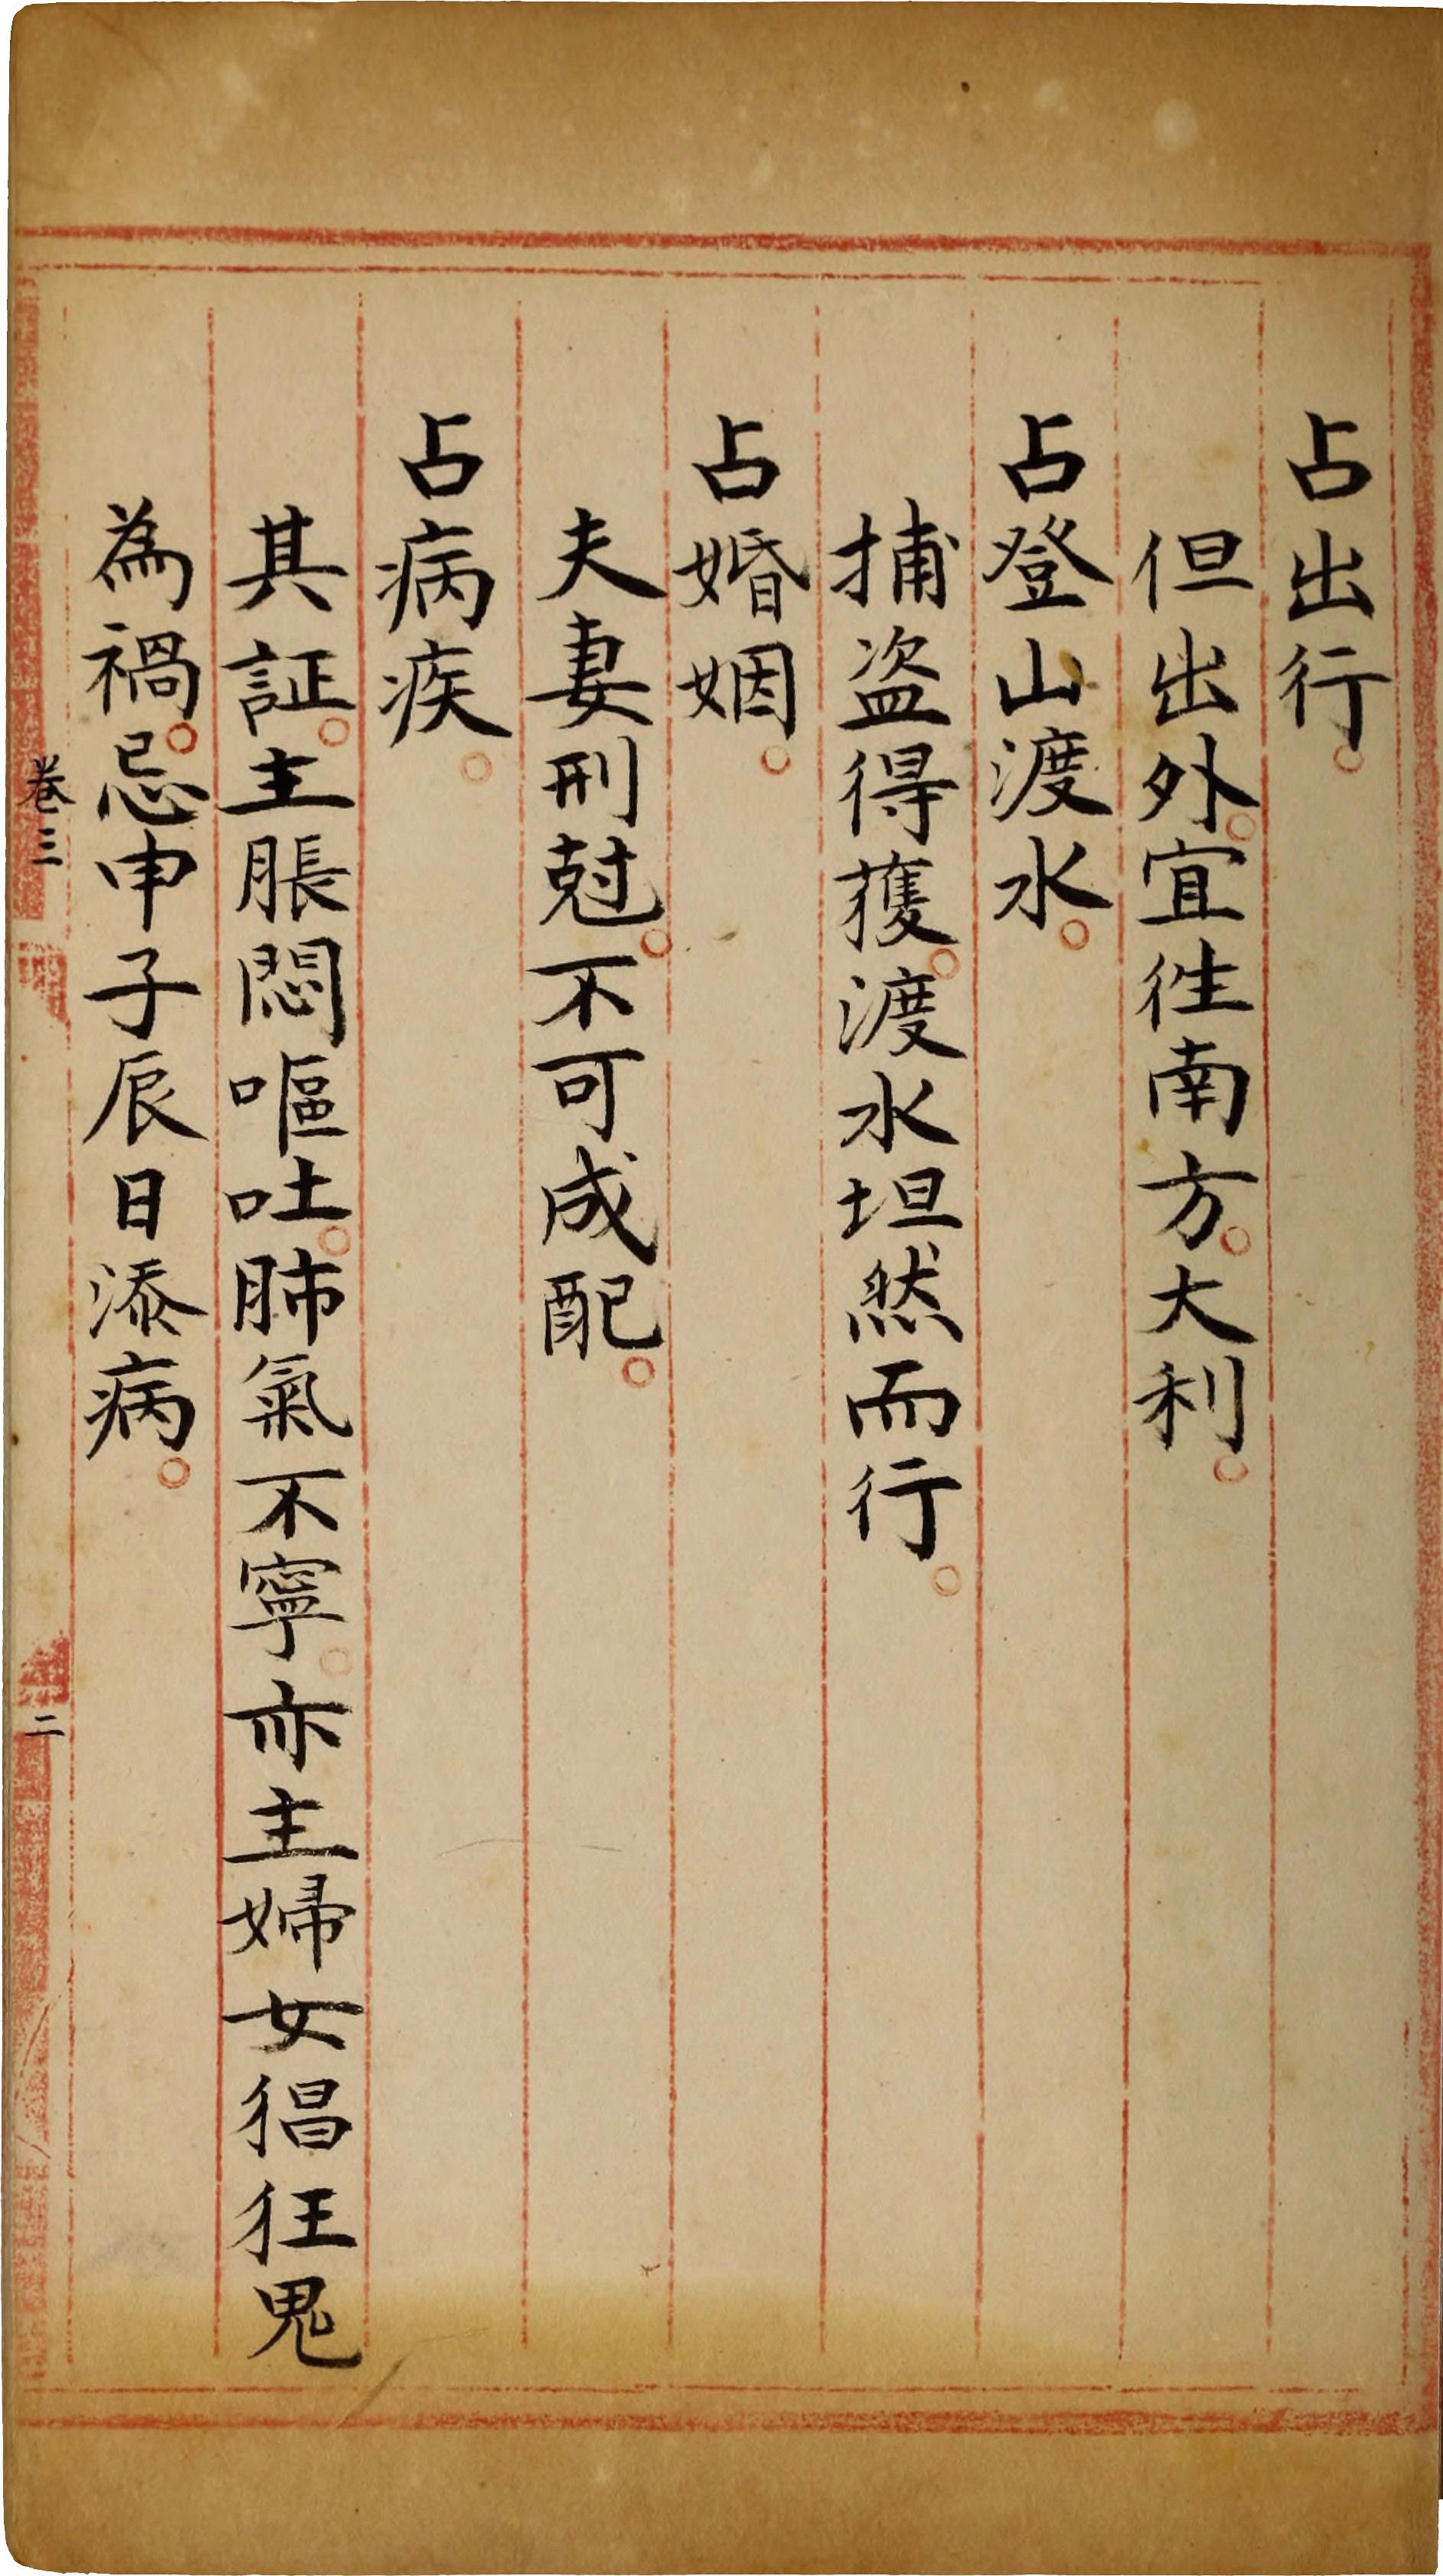 占出行。
但出外。宜徃南方。大利。
占登山渡水。
捕盗得獲。渡水坦然而行。
占婚姻。
夫妻刑尅。不可成配。
占病疾。
其証。主脹悶嘔吐。肺氣不寧。亦主婦女猖狂鬼
為禍。忌申子辰日添病。
卷三
二